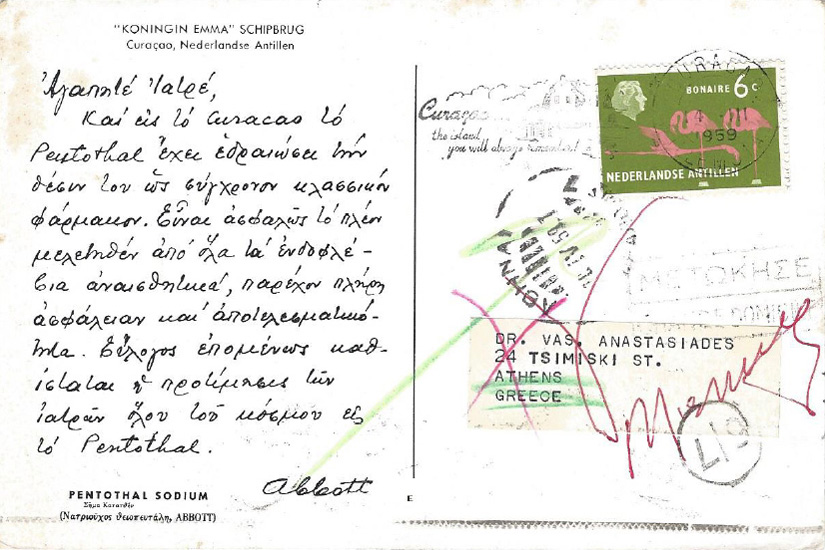 "KONINGIN EMMA" SCHIPBRUG
Curaçao, Nederlandse Antillen
Ἀγαπητέ Ἰατρέ,
Καί εἰς τό Curacao τό
Pentothal ἔχει ἑδραιώσει τήν
θέσιν του ὡς σύγχρονον κλασσικόν
φάρμακον. Εἶναι ἀσφαλῶς τό πλέον
μελετηθέν ἀπό ὅλα τά ἐνδοφλέ-
βια ἀναισθητικά, παρέχον πλήρη
ἀσφάλειαν καί ἀποτελεσματικό-
τητα. Εὔλογος ἑπομένως καθ-
ίσταται ἡ προτίμησις τῶν
ἰατρῶν ὅλου τοῦ κόσμου εἰς
τό Pentothal.
Abbott
PENTOTHAL SODIUM
Σῆμα Κατατεθέν
(Νατριοῦχος θειοπεντάλη, ABBOTT)
E
Curaçao
the island
you will always remember!
CURAÇAO
1959
BONAIRE 6c
NEDERLANDSE ANTILLEN
ΑΘΗΝΑΙ
ΜΕΤΩΚΗΣΕ
DR. VAS. ANASTASIADES
24 TSIMISKI ST.
ATHENS
GREECE